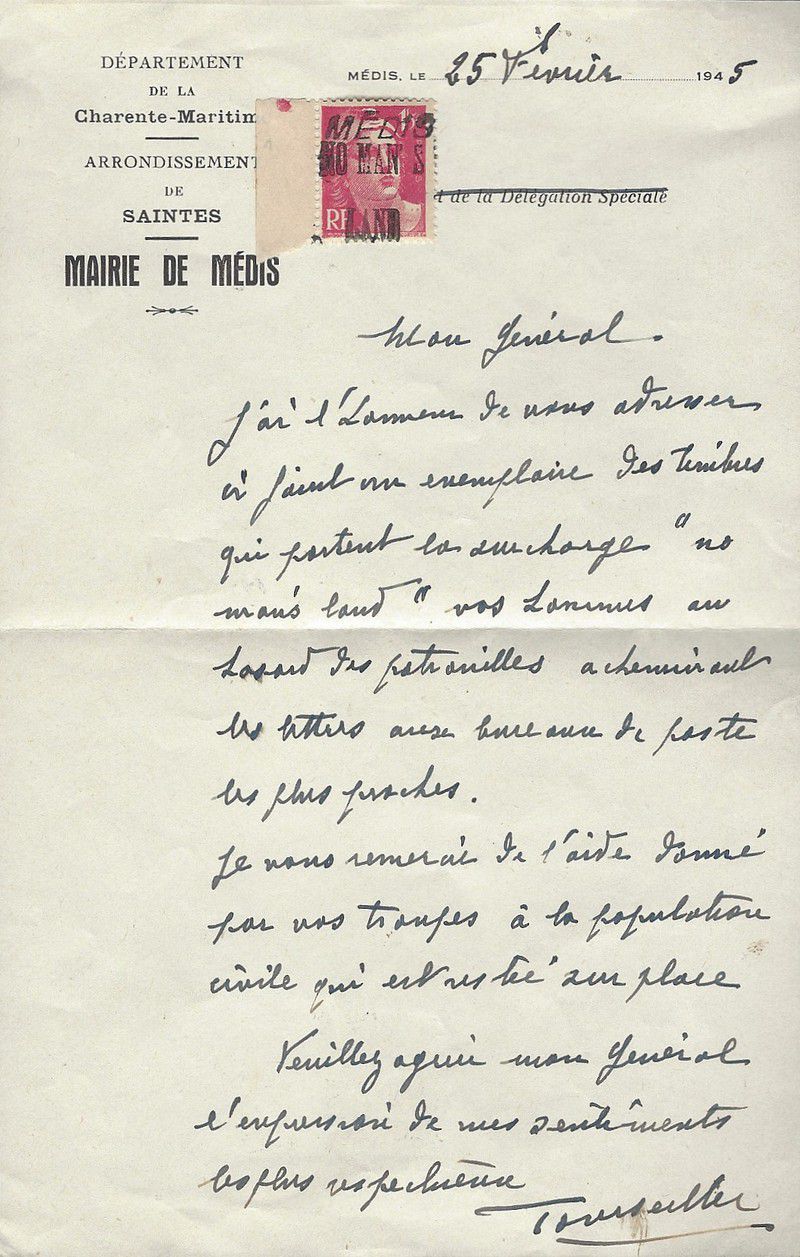 DÉPARTEMENT
DE LA
Charente-Maritim
ARRONDISSEMENT
DE
SAINTES
MAIRIE DE MÉDIS
MÉDIS, LE 25 Février 1945
MÉDIS
NO MAN'S
LAND
RF
t de la Délégation Spéciale
Mon Général.
J'ai l'honneur de vous adresser
ci joint un exemplaire des timbres
qui portent la surcharge "no
man's land" vos hommes au
hasard des patrouilles acheminant
les lettres aux bureaux de poste
les plus proches.
Je vous remercie de l'aide donné
par vos troupes à la population
civile qui est resté sur place
Veuillez agréer mon Général
l'expression de mes sentiments
les plus respectueux